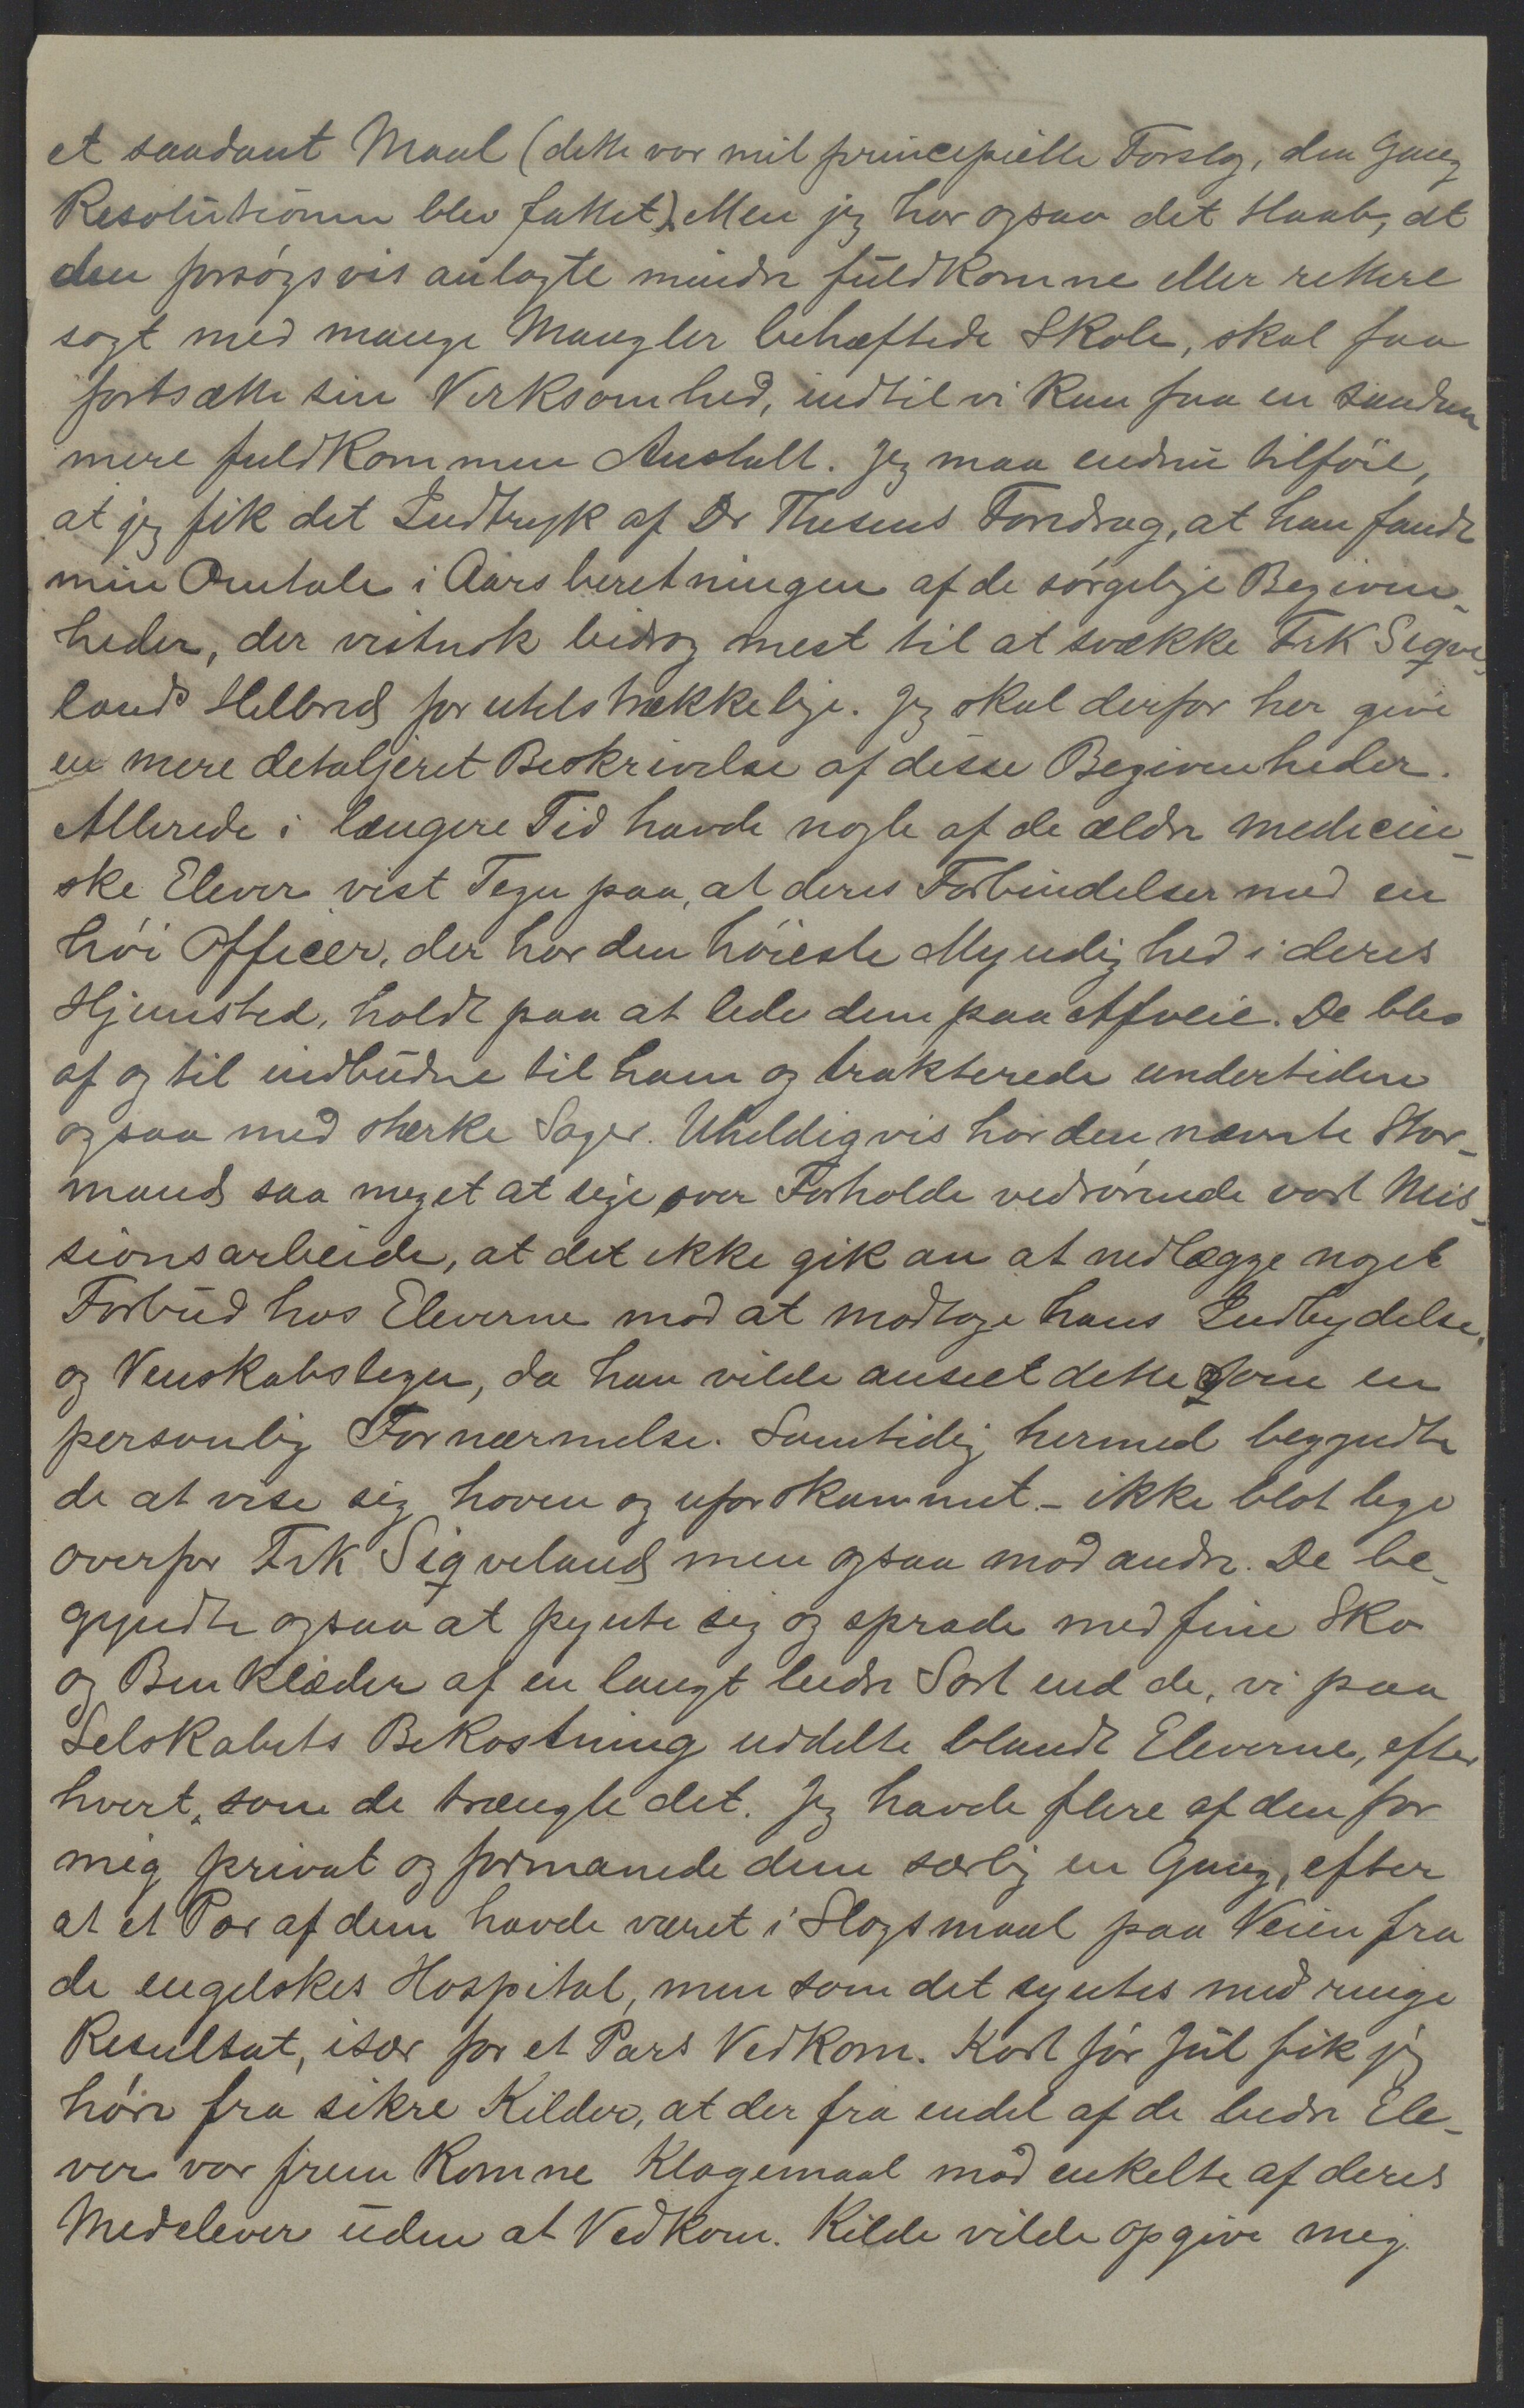 et saadant Maal (dette var mit principielle Forslag, den Gang
Resolutionen blev fattet). Men jeg har ogsaa det Haab, at
den forsøgsvis anlagte mindre fuldkomne eller rettere
sagt med mange Mangler behæftede Skole, skal faa
fortsætte sin Virksomhed, indtil vi kan faa en saadan
mere fuldkommen Anstalt. Jeg maa endnu tilføie,
at jeg fik det Indtryk af Dr Thesens Foredrag, at han fandt
min Omtale i Aarsberetningen af de sørgelige Begiven-
heder, der vistnok bidrog mest til at svække Frk Sigve-
lands Helbred for utilstrækkelige. Jeg skal derfor her give
en mere detaljeret Beskrivelse af disse Begivenheder.
Allerede i længere Tid havde nogle af de ældre medicin-
ske Elever vist Tegn paa, at deres Forbindelser med en
høi Officer, der har den høieste Myndighed i deres
Hjemsted, holdt paa at lede dem paa Afveie. De blev
af og til indbudne til ham og trakterede undertiden
ogsaa med stærke Sager. Uheldigvis har den nævnte Stor-
mand saa meget at sige over Forholde vedrørende vort Mis-
sionsarbeide, at det ikke gik an at nedlægge noget
Forbud hos Eleverne mod at modtage hans Indbydelse
og Venskabstegn, da han vilde anseet dette som en
personlig Fornærmelse. Samtidig hermed begyndte
de at vise sig hoven og uforskammet - ikke blot lige
overfor Frk Sigveland men ogsaa mod andre. De be-
gyndte ogsaa at pynte sig og sprade med fine Sko
og Benklæder af en langt bedre Sort end de, vi paa
Selskabets Bekostning uddelte blandt Eleverne, efter
hvert, som de trængte det. Jeg havde flere af dem for
mig privat og formanede dem særlig en Gang, efter
at et Par af dem havde været i Slagsmaal paa Veien fra
de engelskes Hospital, men som det syntes med ringe
Resultat, især for et Pars Vedkom. Kort før Jul fik jeg
høre fra sikre Kilder, at der fra endel af de bedre Ele-
ver var fremkomne Klagemaal mod enkelte af deres
Medelever uden at Vedkom. Kilde vilde opgive mig